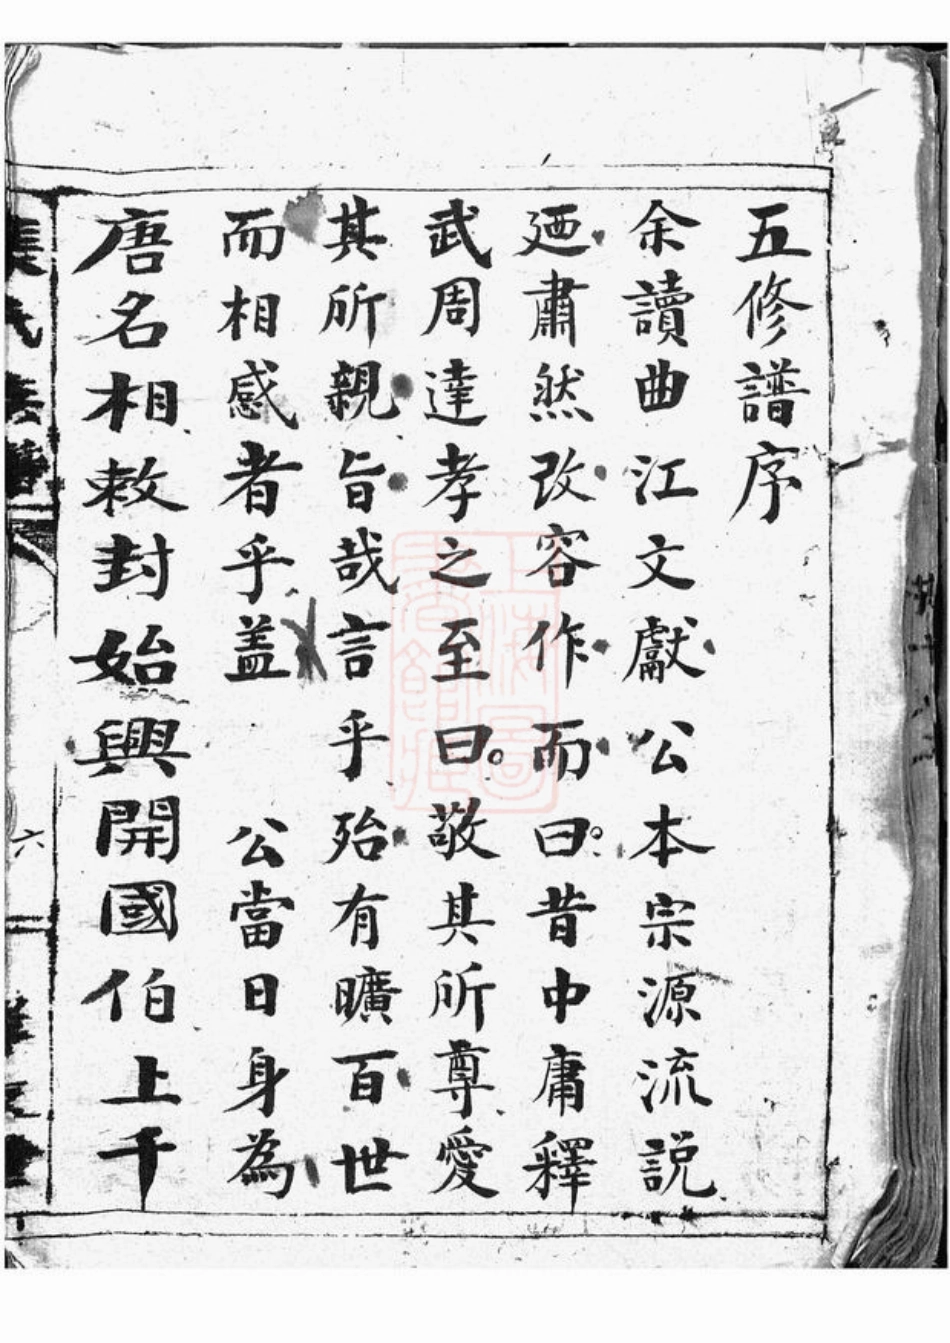 五修譜序
余讀曲江文獻公本宗源流説
廼肅然改容作而曰昔中庸釋
武周達孝之至曰敬其所尊愛
其所親旨哉言乎殆有曠百世
而相感者乎盖公當日身為
唐名相敕封始興開國伯上千
六
上海圖書館藏